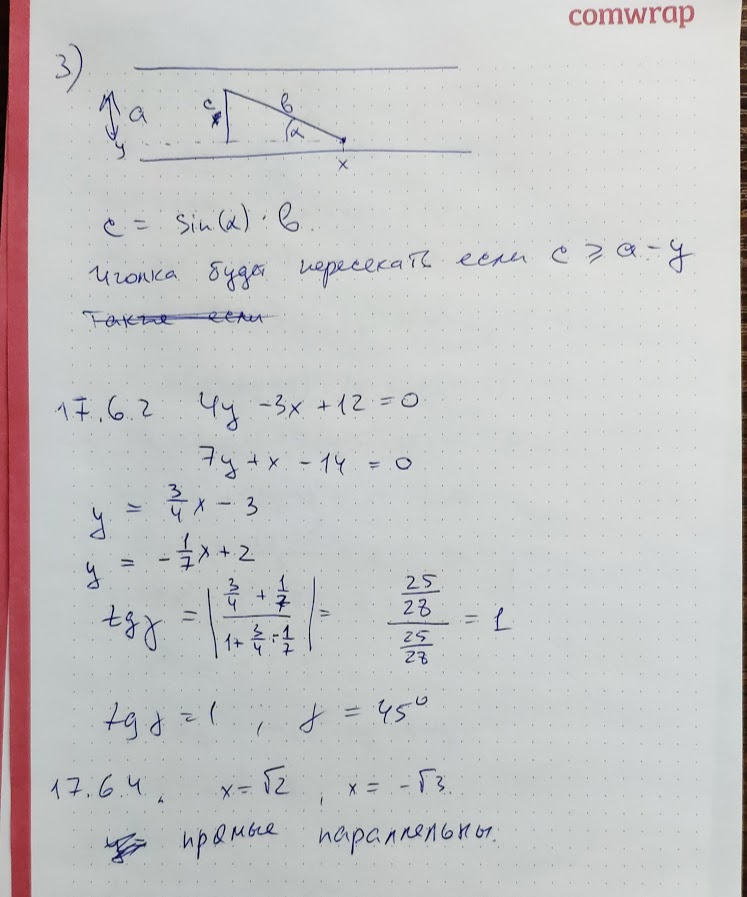 comwrap
3)
a
c
в
α
y
x
c = sin(α) · в.
Иголка будет пересекать если c ⩾ a - y
Также если
17.6.2 4y - 3x + 12 = 0
7y + x - 14 = 0
y = 3/4 x - 3
y = - 1/7 x + 2
tg γ = | (3/4 + 1/7) / (1 + 3/4 · -1/7) | = (25/28) / (25/28) = 1
tg γ = 1 , γ = 45°
17.6.4. x = √2 , x = -√3.
прямые параллельны.